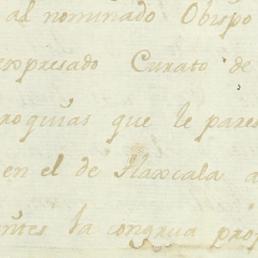 al nominado Obispo
expresado Curato de
roquias que le pares
en el de Tlaxcala a
ntes la congrua prop